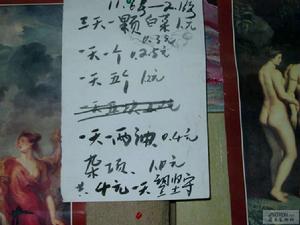 11.15-2.15
三天一颗白菜1元
0.3元
一天一个0.25元
一天五个1元
一天一两油0.4元
杂项 1.0元
共4元一天望坚守